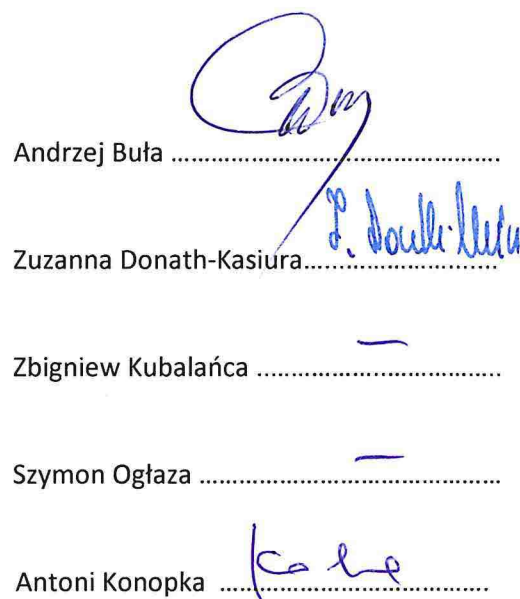 Andrzej Buła ..................................................
Zuzanna Donath-Kasiura..............................
Zbigniew Kubalańca .....................................
—
Szymon Ogłaza ..............................................
—
Antoni Konopka ...........................................